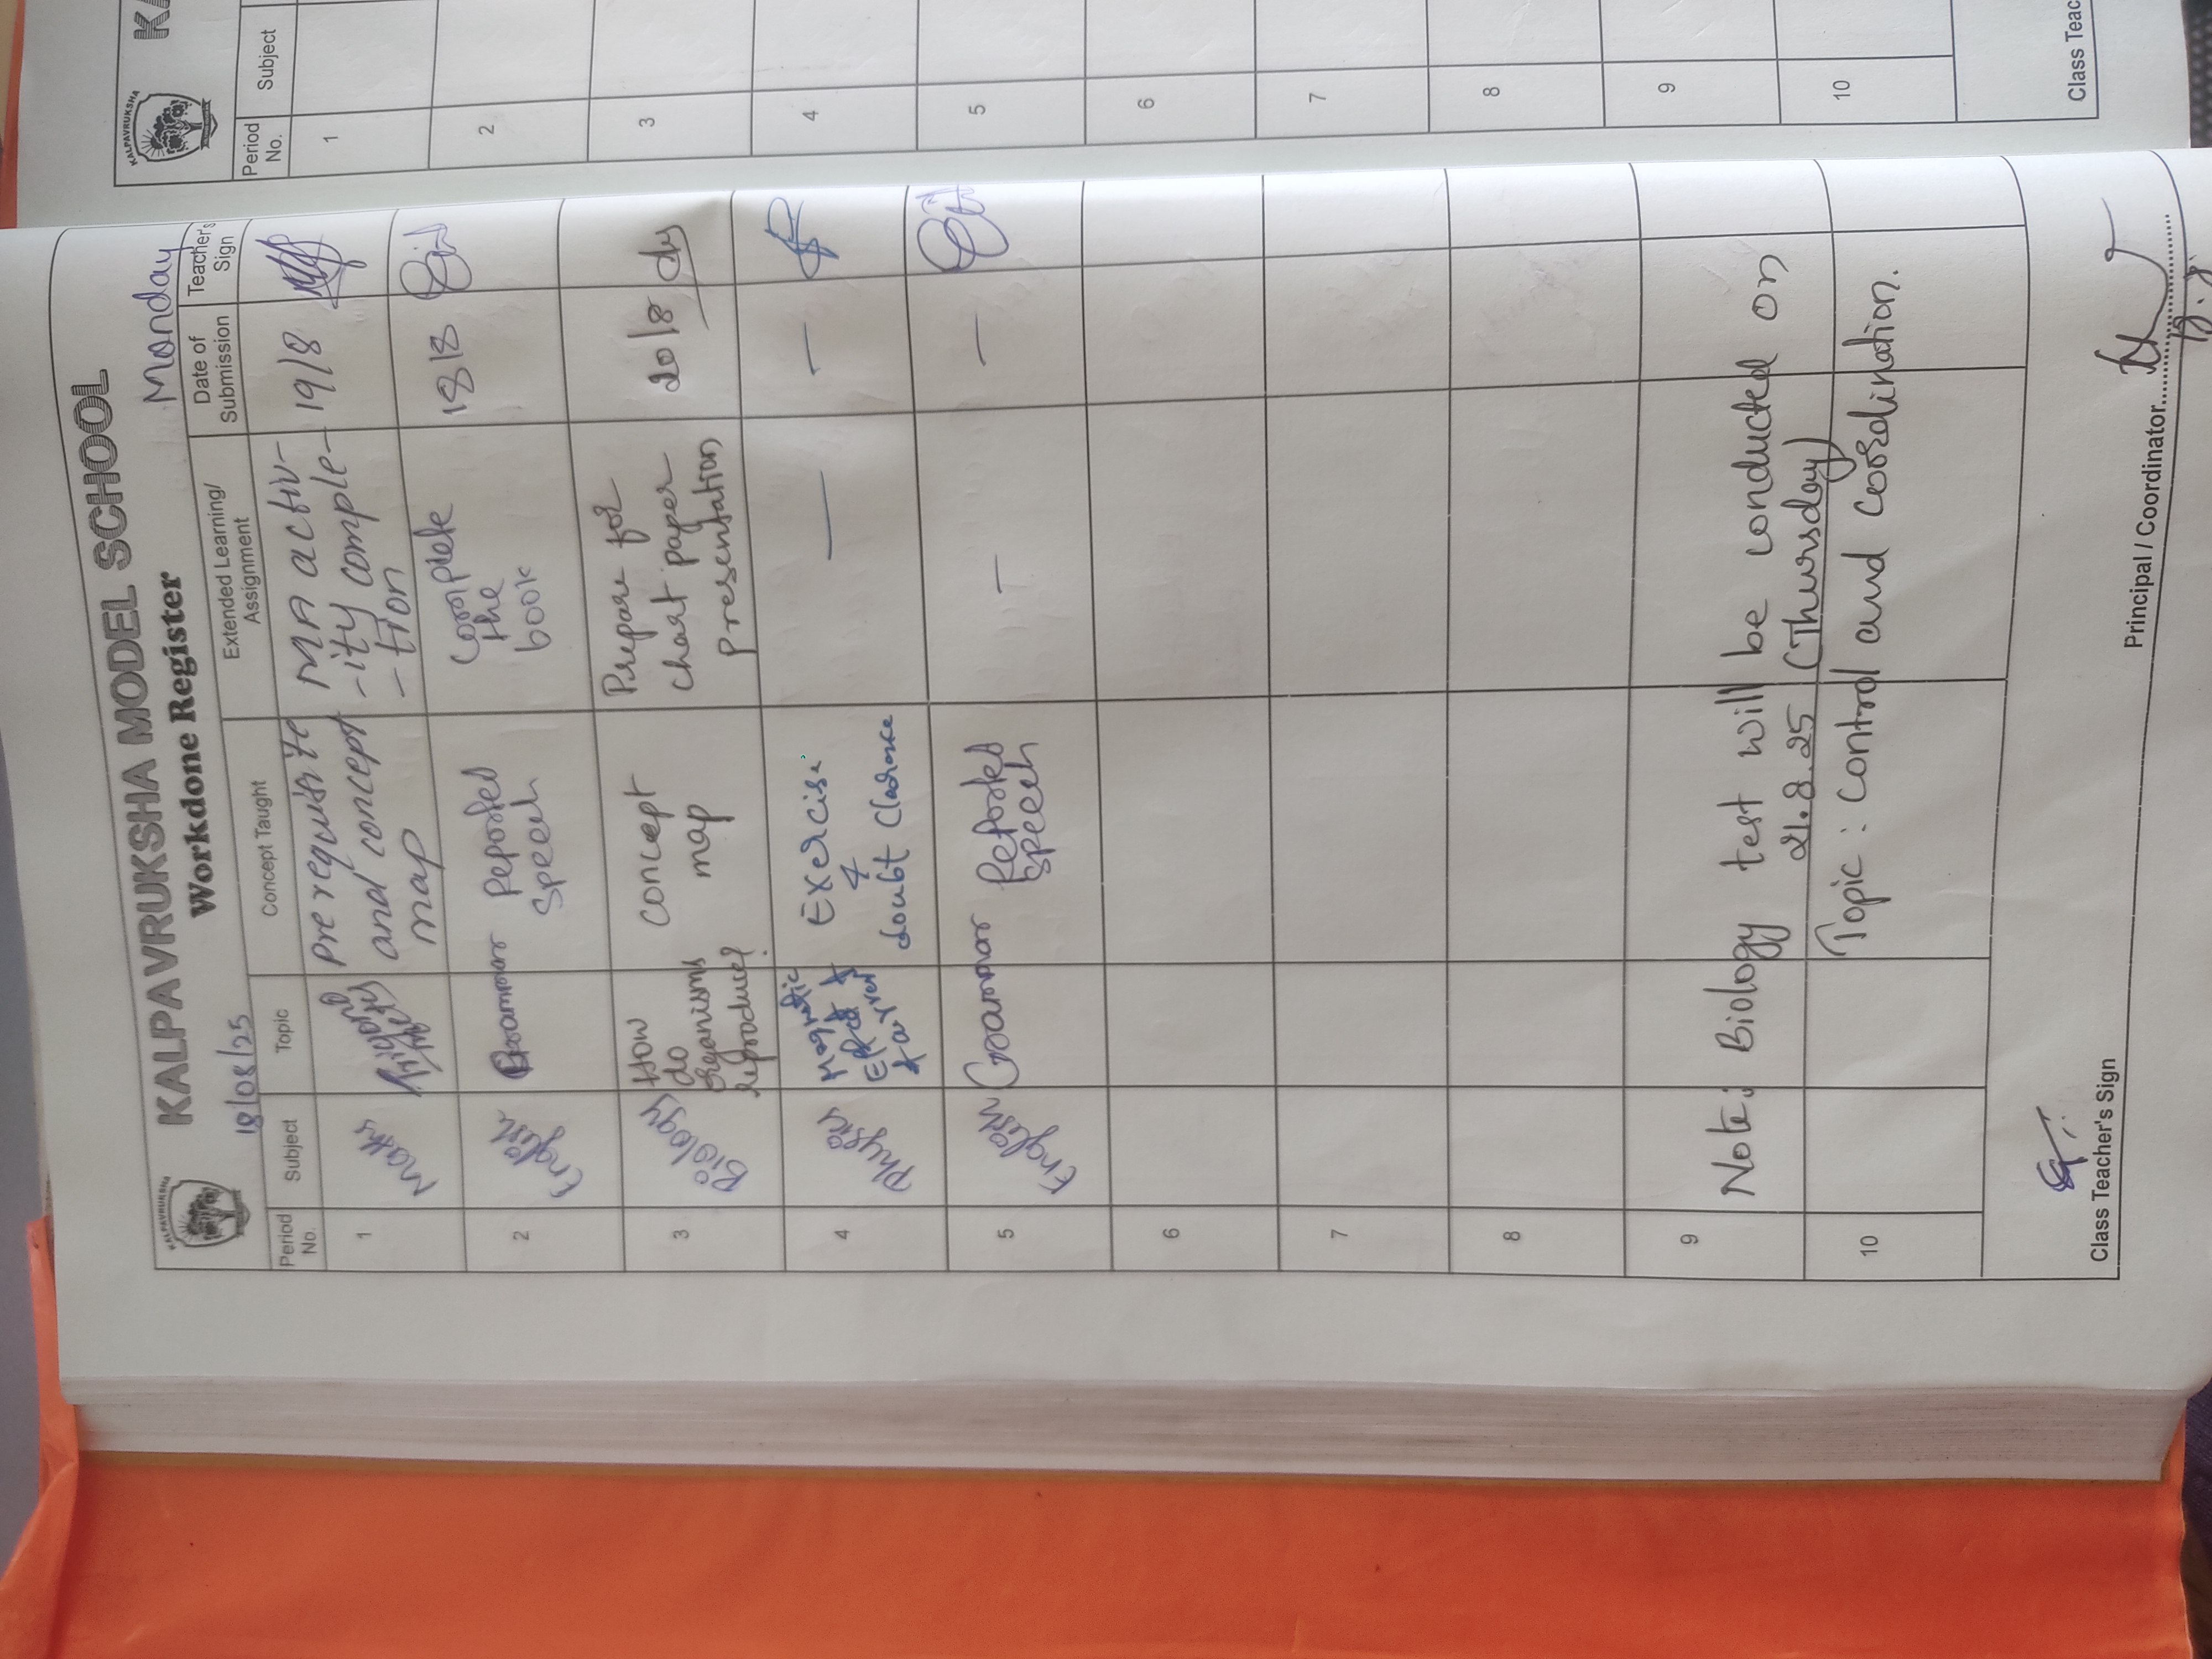 KALPAVRUKSHA
KALPAVRUKSHA MODEL SCHOOL
18/08/25
Workdone Register
Monday
Period No.
Subject
Topic
Concept Taught
Extended Learning/ Assignment
Date of Submission
Teacher's Sign
1
Maths
Prerequisite
and concept
map
MA activ-
-ity comple-
-tion
19/8
2
English
Grammar
Reported
Speech
Complete
the
book
18/8
3
Biology
How
do
organisms
reproduce?
concept
map
Prepare for
chart paper
presentation
20/8
4
Physics
Magnetic
Effect of
Exercise
&
doubt Clearance
—
—
5
English
Grammar
Reported
Speech
—
—
6
7
8
9
Note: Biology test will be conducted on
21.8.25 (Thursday)
10
Topic: Control and Coordination.
Class Teacher's Sign
Principal / Coordinator
KALPAVRUKSHA
Period No.
Subject
1
2
3
4
5
6
7
8
9
10
Class Teac